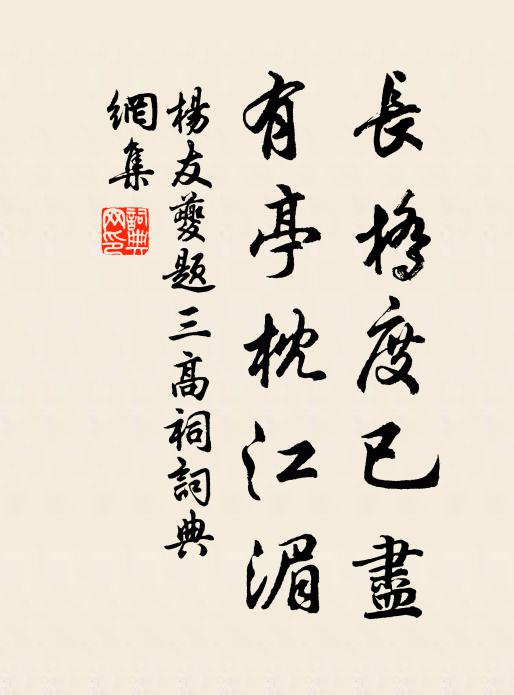 長橋度已盡
有亭枕江湄
楊友夔題三高祠詞典
網集
詞典
网印